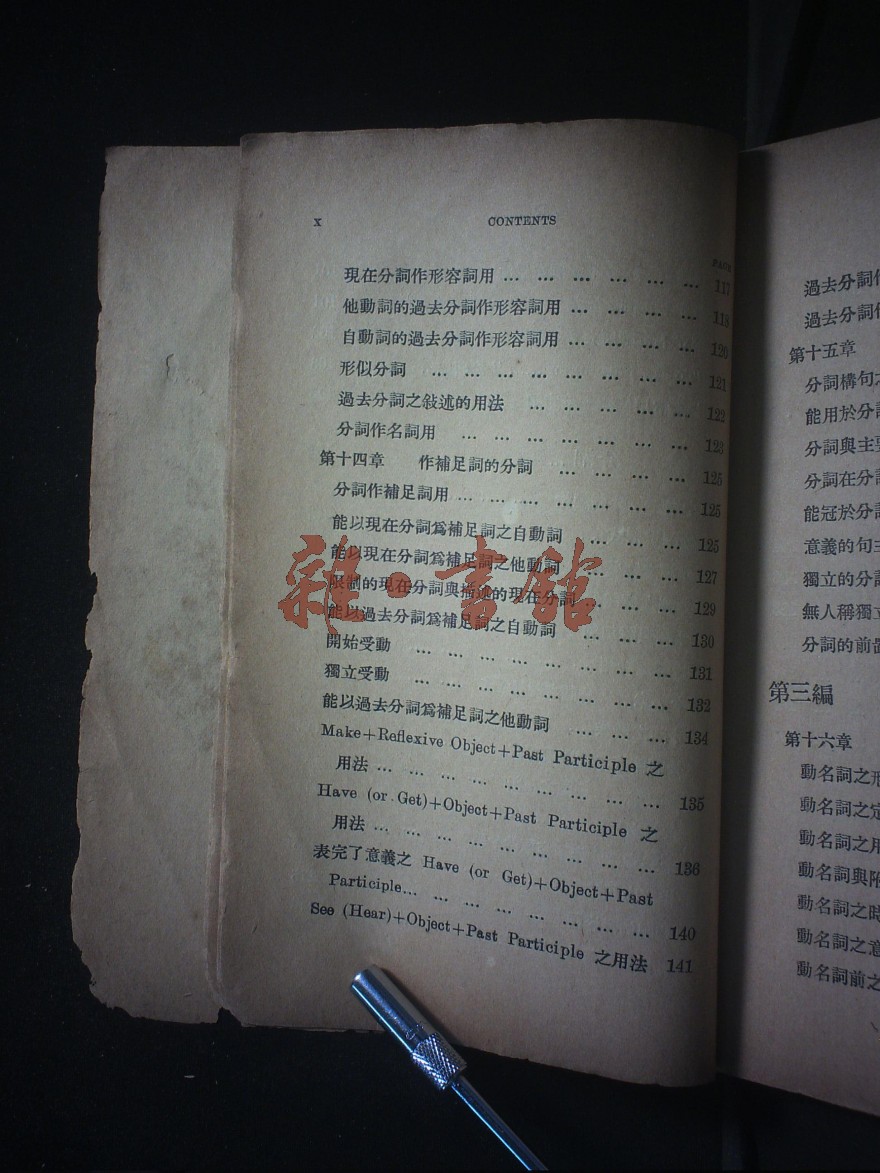 x CONTENTS
PAGE
現在分詞作形容詞用 … … … … … … 117
他動詞的過去分詞作形容詞用 … … … … 118
自動詞的過去分詞作形容詞用 … … … … 120
形似分詞 … … … … … … … … 121
過去分詞之敍述的用法 … … … … … 122
分詞作名詞用 … … … … … … … 123
第十四章 作補足詞的分詞 … … … … 125
分詞作補足詞用 … … … … … … 125
能以現在分詞爲補足詞之自動詞 … … … 125
能以現在分詞爲補足詞之他動詞 … … … 127
限制的現在分詞與描述的現在分詞 … … … 129
能以過去分詞爲補足詞之自動詞 … … … 130
開始受動 … … … … … … … … 131
獨立受動 … … … … … … … … 132
能以過去分詞爲補足詞之他動詞 … … … 134
Make+Reflexive Object+Past Participle 之
用法 … … … … … … … … … 135
Have (or Get)+Object+Past Participle 之
用法 … … … … … … … … … 136
表完了意義之 Have (or Get)+Object+Past
Participle… … … … … … … … 140
See (Hear)+Object+Past Participle 之用法 141
雜·書館
過去分詞
過去分詞
第十五章
分詞構句之
能用於分詞
分詞與主要
分詞在分詞
能冠於分詞
意義的句主
獨立的分詞
無人稱獨立
分詞的前置
第三編
第十六章
動名詞之形
動名詞之定
動名詞之用
動名詞與附
動名詞之時
動名詞之意
動名詞前之